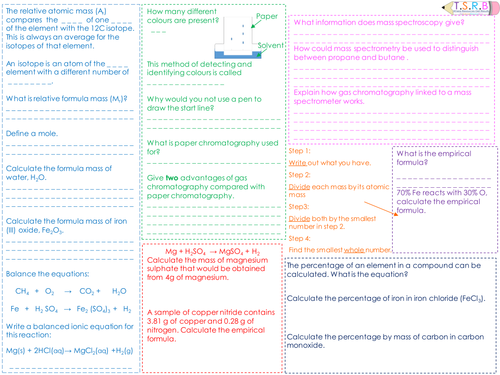 The relative atomic mass (Aᵣ)
compares the _ _ _ _ of one _ _ _ _
of the element with the 12C isotope.
This is always an average for the
isotopes of that element.
An isotope is an atom of the _ _ _ _
element with a different number of
_ _ _ _ _ _ _ _.
What is relative formula mass (Mᵣ)?
Define a mole.
Calculate the formula mass of
water, H₂O.
Calculate the formula mass of iron
(III) oxide, Fe₂O₃.
Balance the equations:
CH₄ + O₂ → CO₂ + H₂O
Fe + H₂SO₄ → Fe₂(SO₄)₃ + H₂
Write a balanced ionic equation for
this reaction:
Mg(s) + 2HCl(aq)→ MgCl₂(aq) +H₂(g)
How many different
colours are present?
_ _ _
Paper
Solvent
This method of detecting and
identifying colours is called
Why would you not use a pen to
draw the start line?
What is paper chromatography used
for?
Give two advantages of gas
chromatography compared with
paper chromatography.
Mg + H₂SO₄ → MgSO₄ + H₂
Calculate the mass of magnesium
sulphate that would be obtained
from 4g of magnesium.
A sample of copper nitride contains
3.81 g of copper and 0.28 g of
nitrogen. Calculate the empirical
formula.
T.S.R.B
What information does mass spectroscopy give?
How could mass spectrometry be used to distinguish
between propane and butane .
Explain how gas chromatography linked to a mass
spectrometer works.
Step 1:
Write out what you have.
Step 2:
Divide each mass by its atomic
mass
Step3:
Divide both by the smallest
number in step 2.
Step 4:
Find the smallest whole number.
What is the empirical
formula?
70% Fe reacts with 30% O,
calculate the empirical
formula.
The percentage of an element in a compound can be
calculated. What is the equation?
Calculate the percentage of iron in iron chloride (FeCl₃).
Calculate the percentage by mass of carbon in carbon
monoxide.